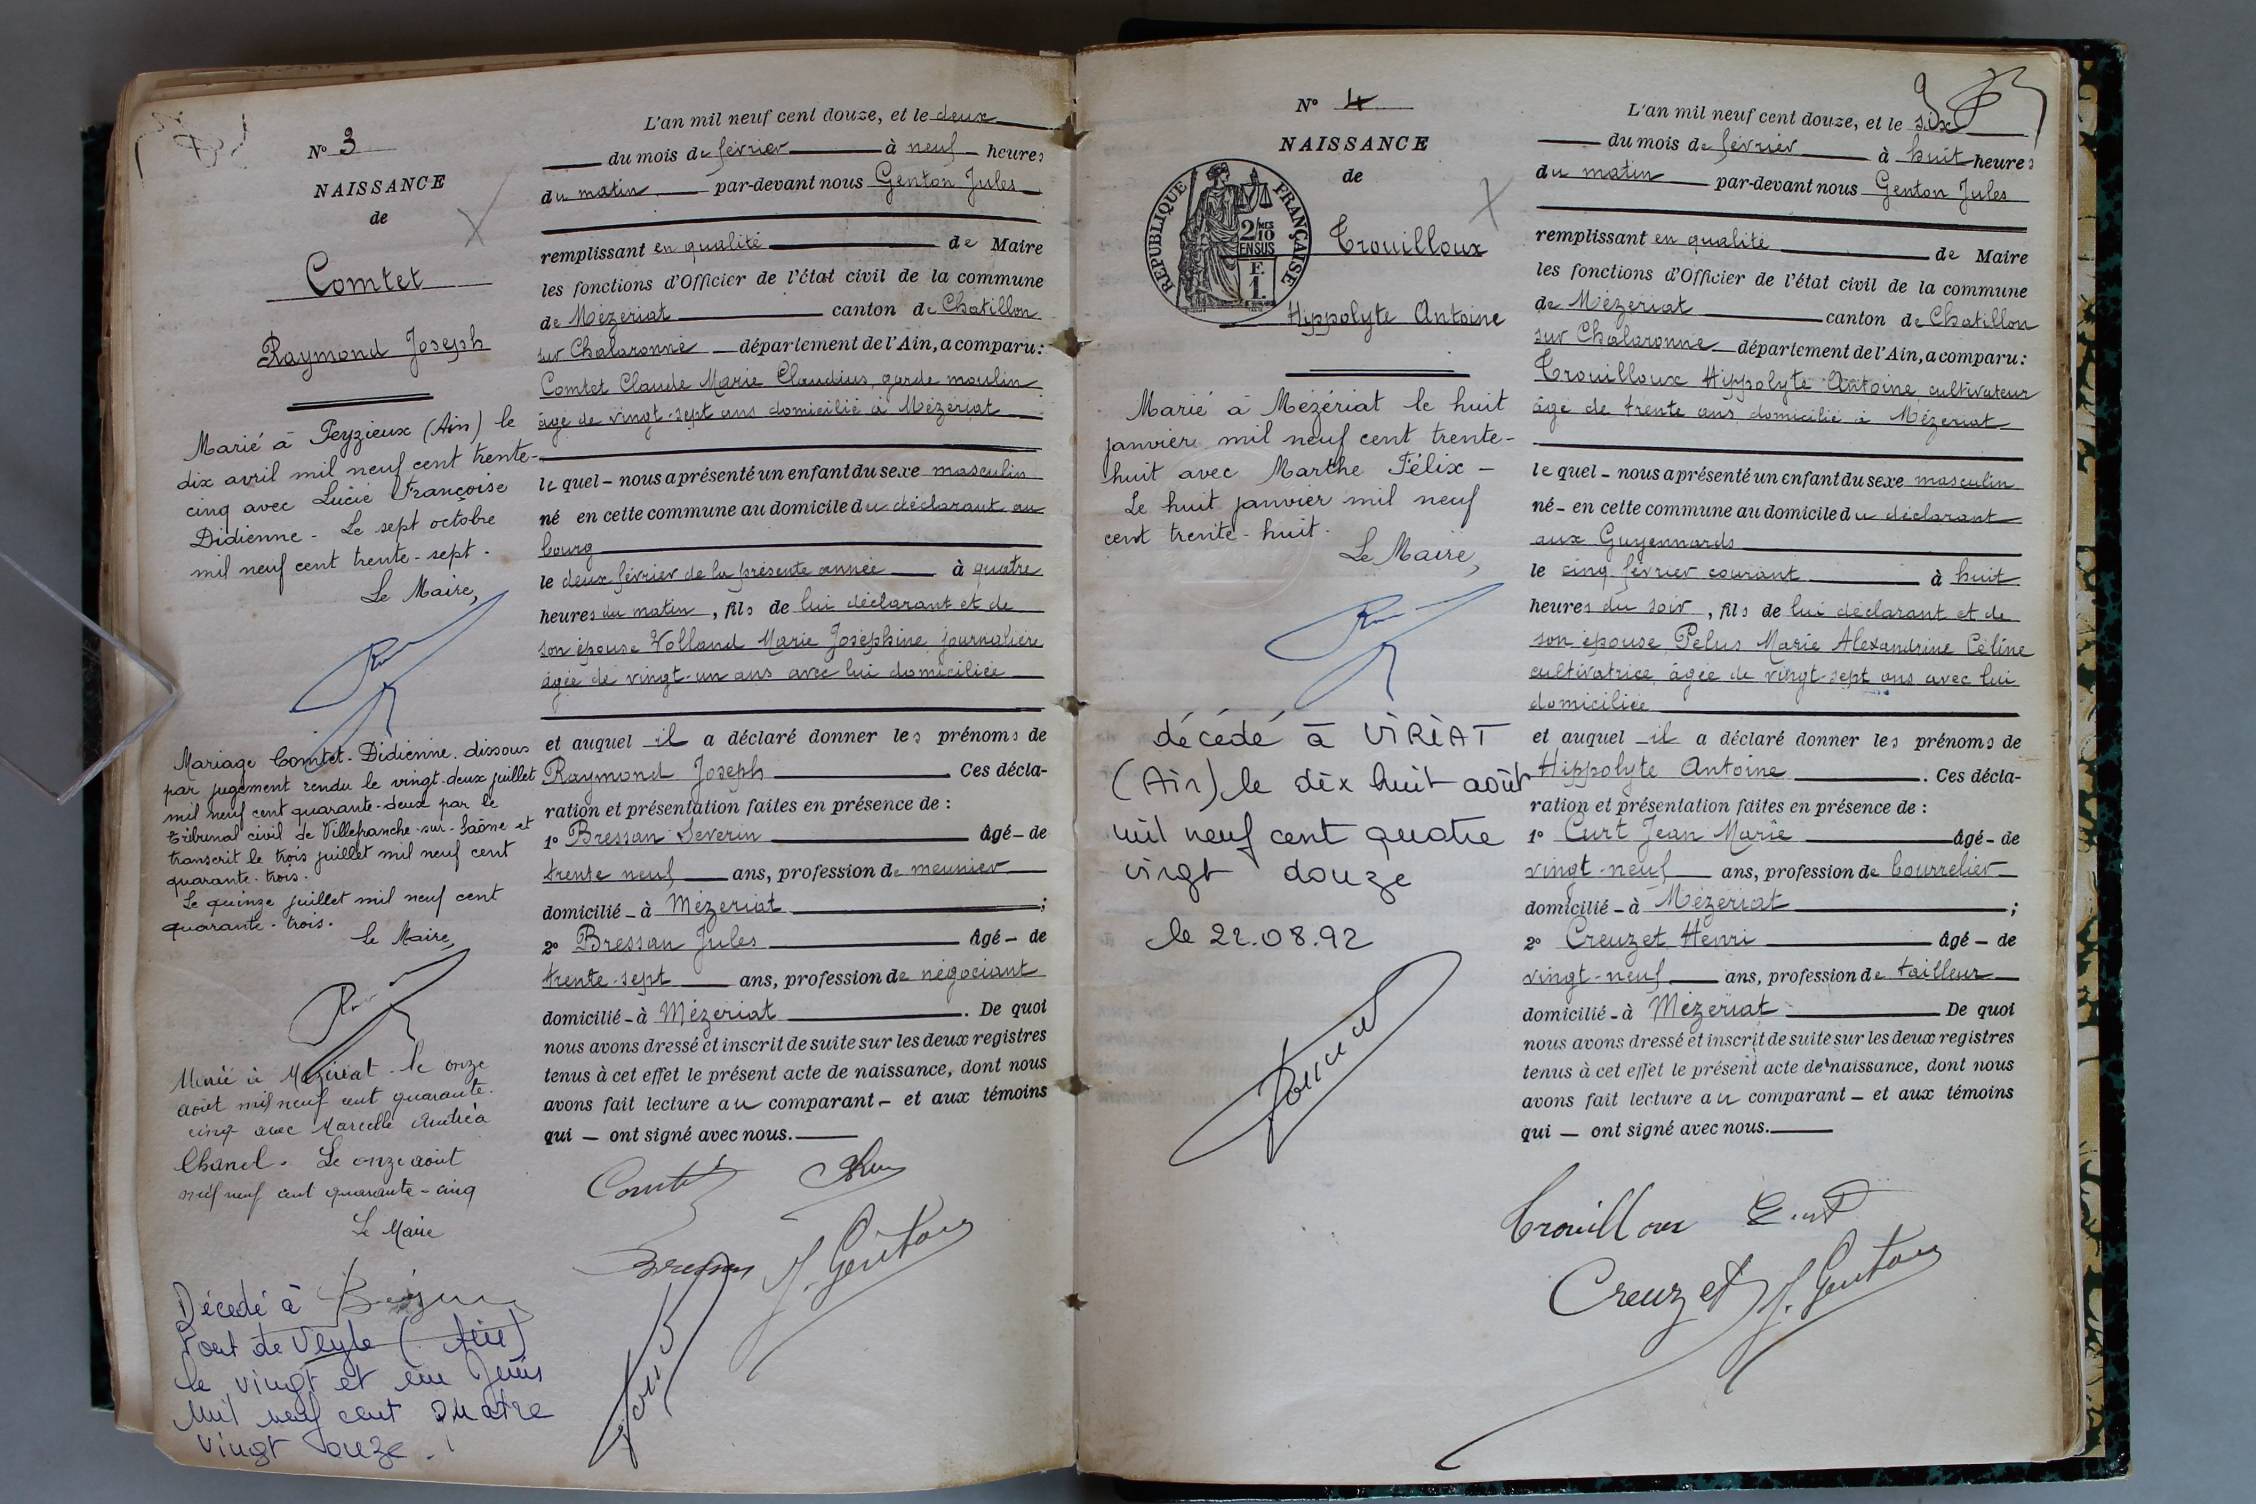 N° 3
NAISSANCE
de
Comtet
Raymond Joseph
Marié à Peyzieux (Ain) le
dix avril mil neuf cent trente-
cinq avec Lucie Françoise
Didienne - Le sept octobre
mil neuf cent trente-sept.
Le Maire,
Mariage Comtet-Didienne dissous
par jugement rendu le vingt-deux juillet
mil neuf cent quarante-deux par le
tribunal civil de Villefranche-sur-Saône et
transcrit le trois juillet mil neuf cent
quarante-trois.
Le quinze juillet mil neuf cent
quarante-trois.
Le Maire,
Marié à Mézériat le onze
août mil neuf cent quarante-
cinq avec Marcelle Andréa
Chanel. Le onze août
mil neuf cent quarante-cinq
Le Maire
Décédé à
Pont de Veyle (Ain)
le vingt et un Juin
Mil neuf cent quatre
vingt onze.
L'an mil neuf cent douze, et le deux
du mois de février à neuf heures
du matin par-devant nous Genton Jules
remplissant en qualité de Maire
les fonctions d'Officier de l'état civil de la commune
de Mézériat canton de Chatillon
sur Chalaronne département de l'Ain, a comparu:
Comtet Claude Marie Claudius, garde moulin
âgé de vingt-sept ans domicilié à Mézériat
lequel - nous a présenté un enfant du sexe masculin
né en cette commune au domicile du déclarant au
bourg
le deux février de la présente année à quatre
heures du matin, fils de lui déclarant et de
son épouse Volland Marie Joséphine journalière
âgée de vingt-un ans avec lui domiciliée
et auquel il a déclaré donner les prénoms de
Raymond Joseph. Ces décla-
ration et présentation faites en présence de :
1° Bressan Séverin Agé - de
trente neuf ans, profession de meunier
domicilié - à Mézériat ;
2° Bressan Jules Agé - de
trente-sept ans, profession de négociant
domicilié - à Mézériat. De quoi
nous avons dressé et inscrit de suite sur les deux registres
tenus à cet effet le présent acte de naissance, dont nous
avons fait lecture au comparant - et aux témoins
qui - ont signé avec nous.
Comtet
Bressan J. Genton
N° 4
NAISSANCE
de
REPUBLIQUE FRANÇAISE
2/10 MES
EN SUS
F.
1.
Trouilloux
Hippolyte Antoine
Marié à Mézériat le huit
janvier mil neuf cent trente-
huit avec Marthe Félix -
Le huit janvier mil neuf
cent trente-huit.
Le Maire,
décédé à VIRIAT
(Ain) le dix huit août
mil neuf cent quatre
vingt douze
le 22.08.92
L'an mil neuf cent douze, et le six
du mois de février à huit heures
du matin par-devant nous Genton Jules
remplissant en qualité de Maire
les fonctions d'Officier de l'état civil de la commune
de Mézériat canton de Chatillon
sur Chalaronne département de l'Ain, a comparu:
Trouilloux Hippolyte Antoine, cultivateur
âgé de trente ans, domicilié à Mézériat
lequel - nous a présenté un enfant du sexe masculin
né - en cette commune au domicile du déclarant
aux Guyennards
le cinq février courant à huit
heures du soir, fils de lui déclarant et de
son épouse Pelus Marie Alexandrine Céline
cultivatrice, âgée de vingt-sept ans avec lui
domiciliée
et auquel il a déclaré donner les prénoms de
Hippolyte Antoine. Ces décla-
ration et présentation faites en présence de :
1° Curt Jean Marie Agé - de
vingt-neuf ans, profession de bourrelier
domicilié - à Mézériat ;
2° Creuzet Henri Agé - de
vingt-neuf ans, profession de tailleur
domicilié - à Mézériat De quoi
nous avons dressé et inscrit de suite sur les deux registres
tenus à cet effet le présent acte de naissance, dont nous
avons fait lecture au comparant - et aux témoins
qui - ont signé avec nous.
Trouilloux Curt
Creuzet J. Genton